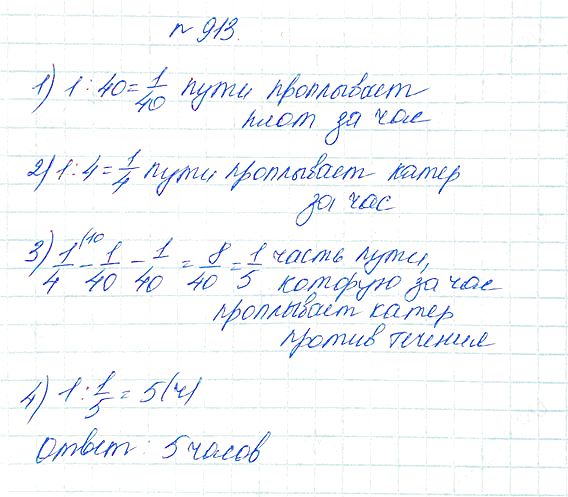 № 913.
1) 1 : 40 = 1/40 пути проплывает
плот за час
2) 1 : 4 = 1/4 пути проплывает катер
за час
3) 1/4 (10 - 1/40 - 1/40 = 8/40 = 1/5 часть пути,
которую за час
проплывает катер
против течения
4) 1 : 1/5 = 5 (ч)
Ответ: 5 часов